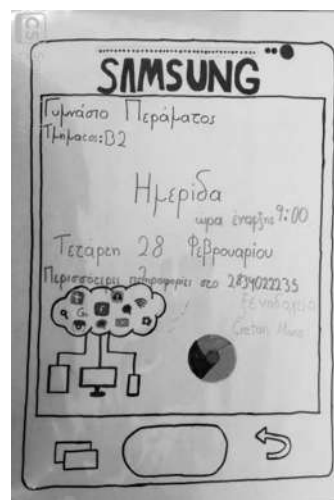 SAMSUNG
Γυμνάσιο Περάματος
Τμήματος:Β2
Ημερίδα
ώρα έναρξης 9:00
Τετάρτη 28 Φεβρουαρίου
Περισσότερες πληροφορίες στο 2834022235
Ξενοδοχείο
Cretan